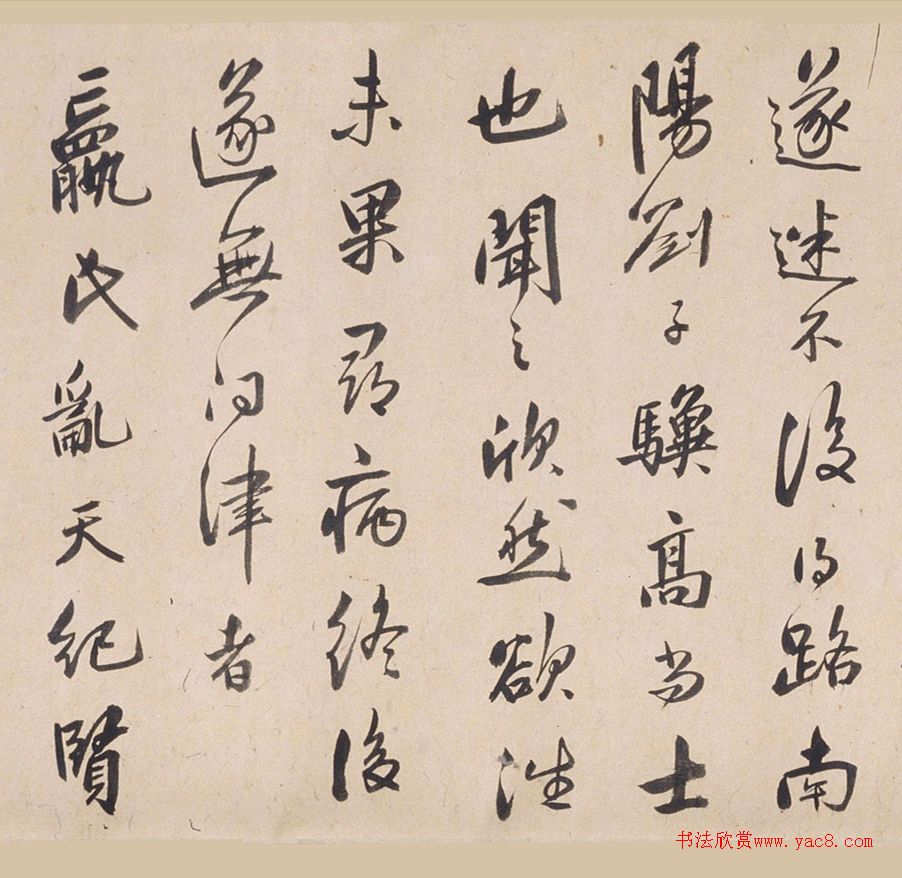 遂迷不復得路南
陽劉子驥高尚士
也聞之欣然欲往
未果尋病終後
遂無問津者
嬴氏亂天紀賢
书法欣赏www.yac8.com